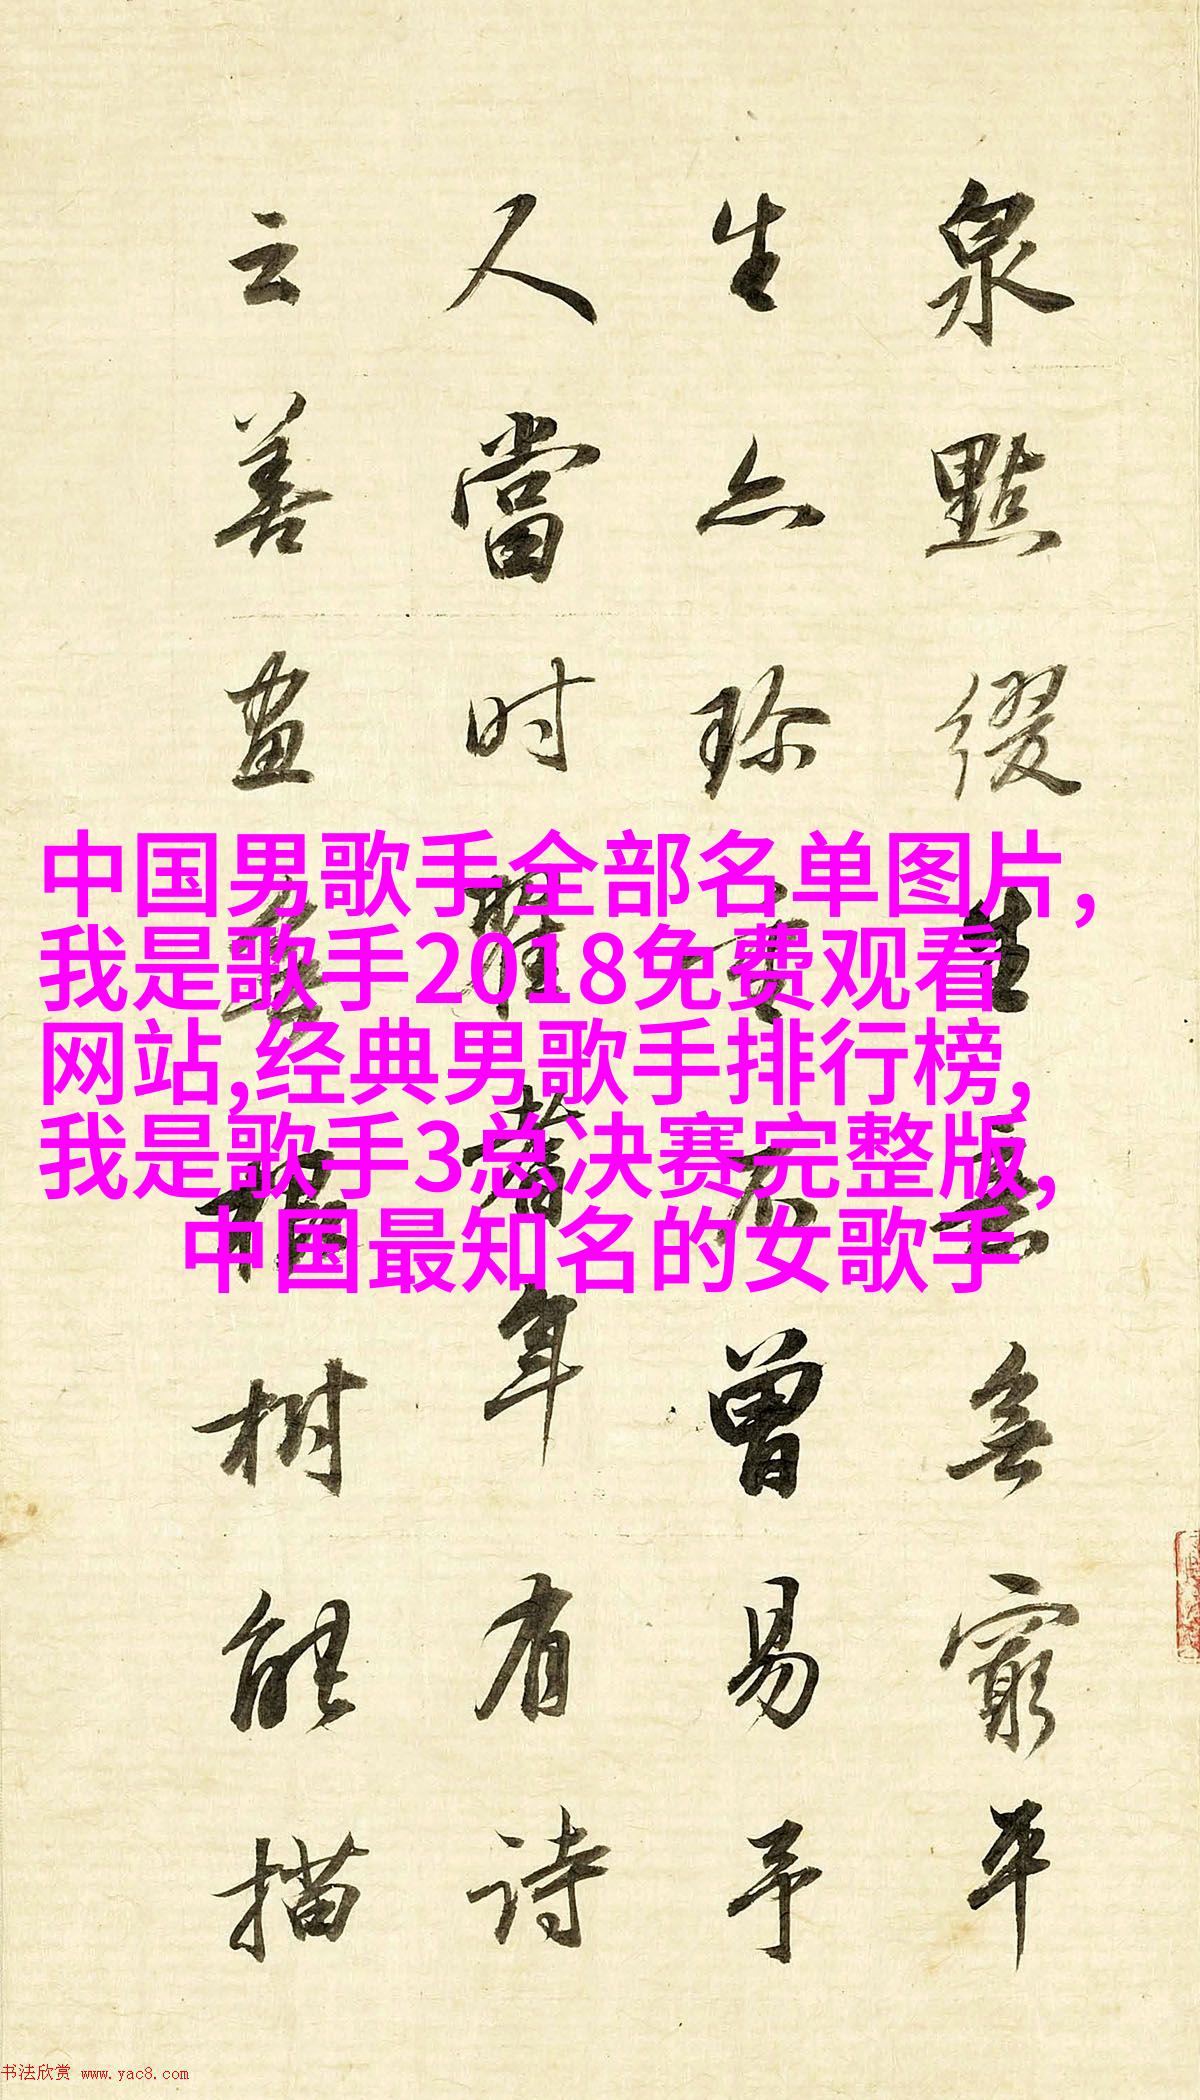 泉點綴生意無窮平
生亦珍不曾易予
人當时翟耆年有诗
云善畫無根树能描
中国男歌手全部名单图片,
我是歌手2018免费观看
网站,经典男歌手排行榜,
我是歌手3总决赛完整版,
中国最知名的女歌手
书法欣赏 www.yac8.com